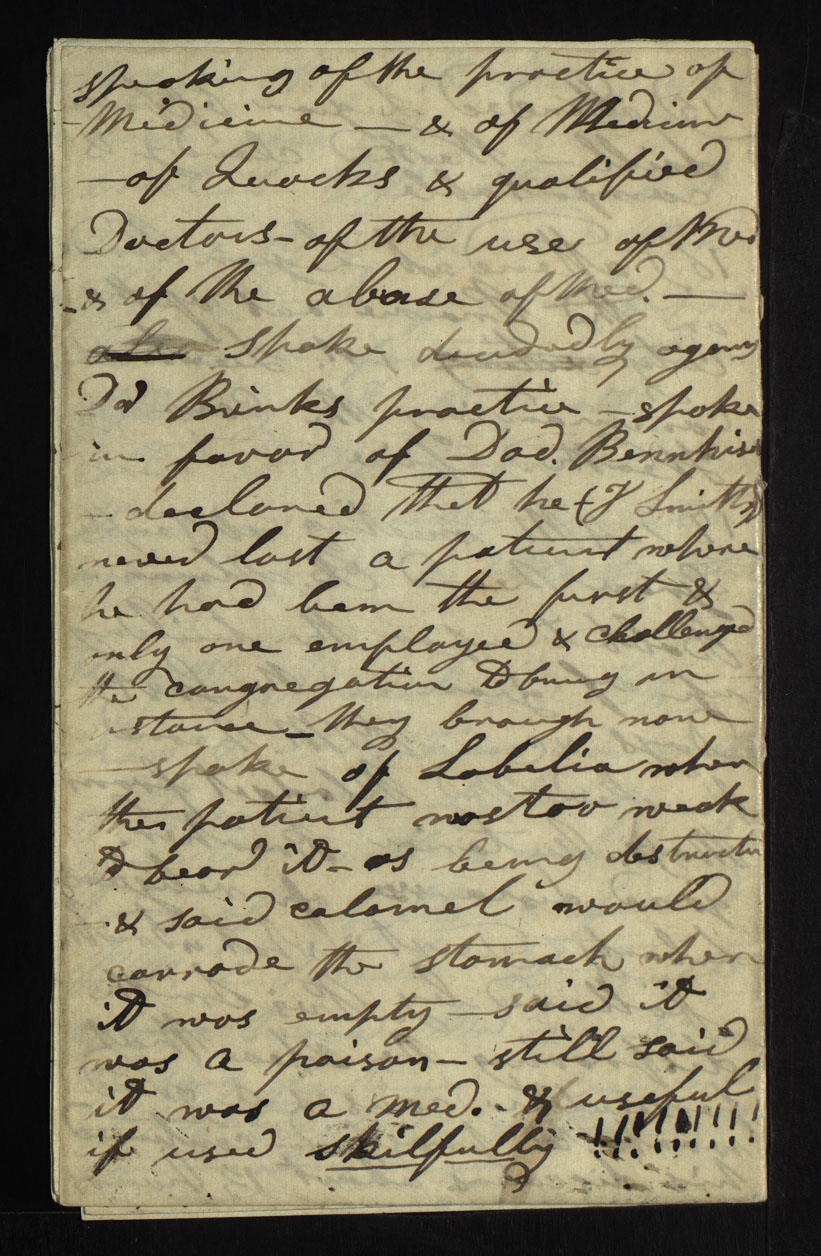 speaking of the practice of
Medicine — & of Medicine
— of Quacks & qualified
Doctors - of the use of Med
- & of the abuse of Med. —
also spoke decidedly again
Dr Brinks practice - spoke
in favor of Doc.
- declared that he (J Smith)
never lost a patient where
he had been the first &
only one employed & challenged
the congregation to bring an
instance - they brough none
— spoke of Lobelia when
the patient was too weak
to bear it - as being destructive
- & said calomel would
corrode the stomach when
it was empty - said it
was a poison - still said
it was a med. - & useful
if used skilfully !!!!!!!!!